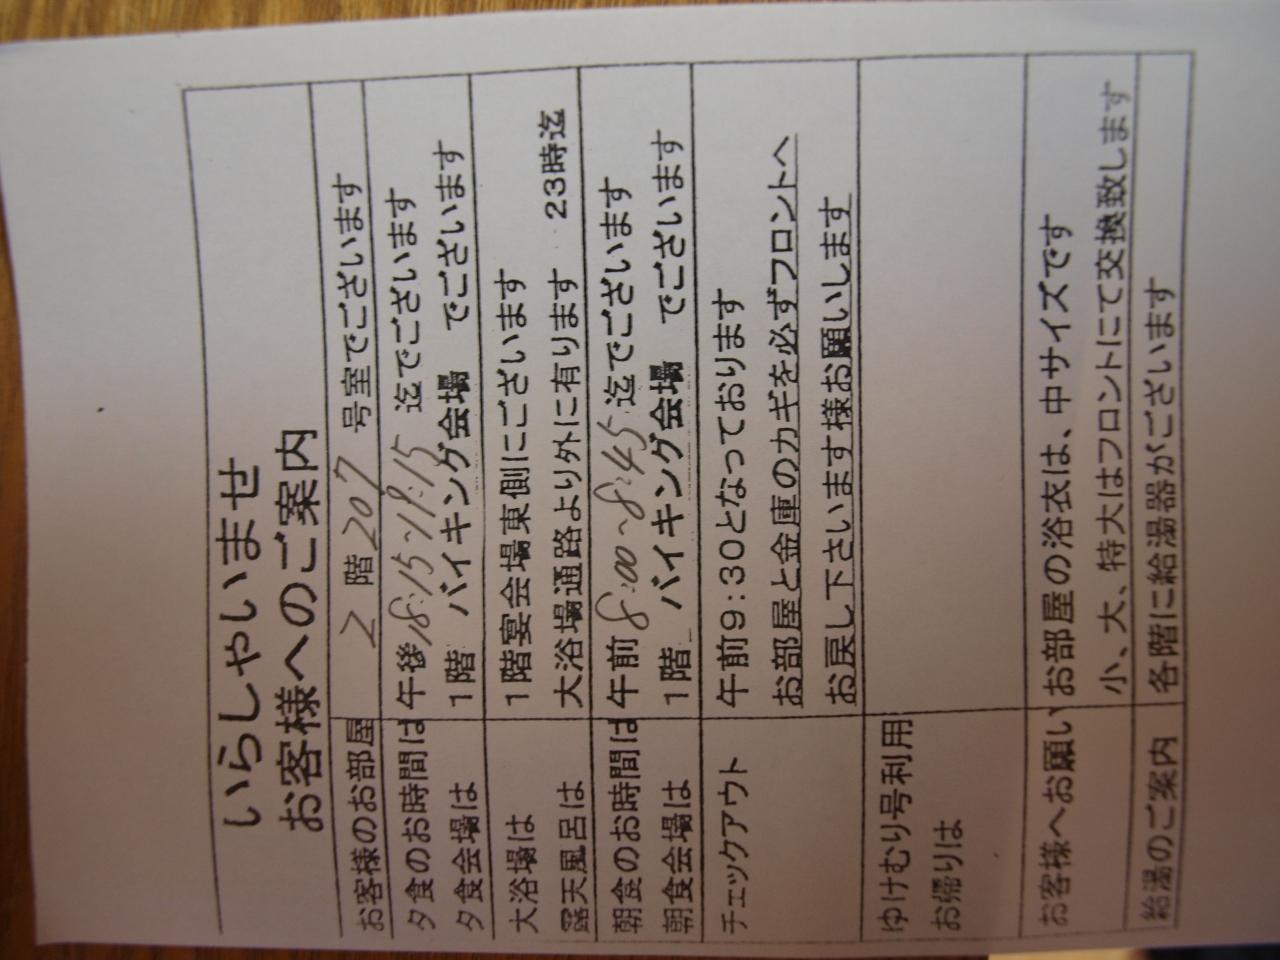 いらしゃいませ
お客様へのご案内
お客様のお部屋 2 階 207 号室でございます
夕食のお時間は 午後 8:15~ 迄でございます
夕食会場は 1階 バイキング会場 でございます
大浴場は 1階宴会場東側にございます
露天風呂は 大浴場通路より外に有ります 23時迄
朝食のお時間は 午前 8:00~8:45 迄でございます
朝食会場は 1階 バイキング会場 でございます
チェックアウト 午前9:30となっております
お部屋と金庫のカギを必ずフロントへ
お戻し下さいます様お願いします
ゆけむり号利用
お帰りは
お客様へお願い お部屋の浴衣は、中サイズです
小、大、特大はフロントにて交換致します
給湯のご案内 各階に給湯器がございます